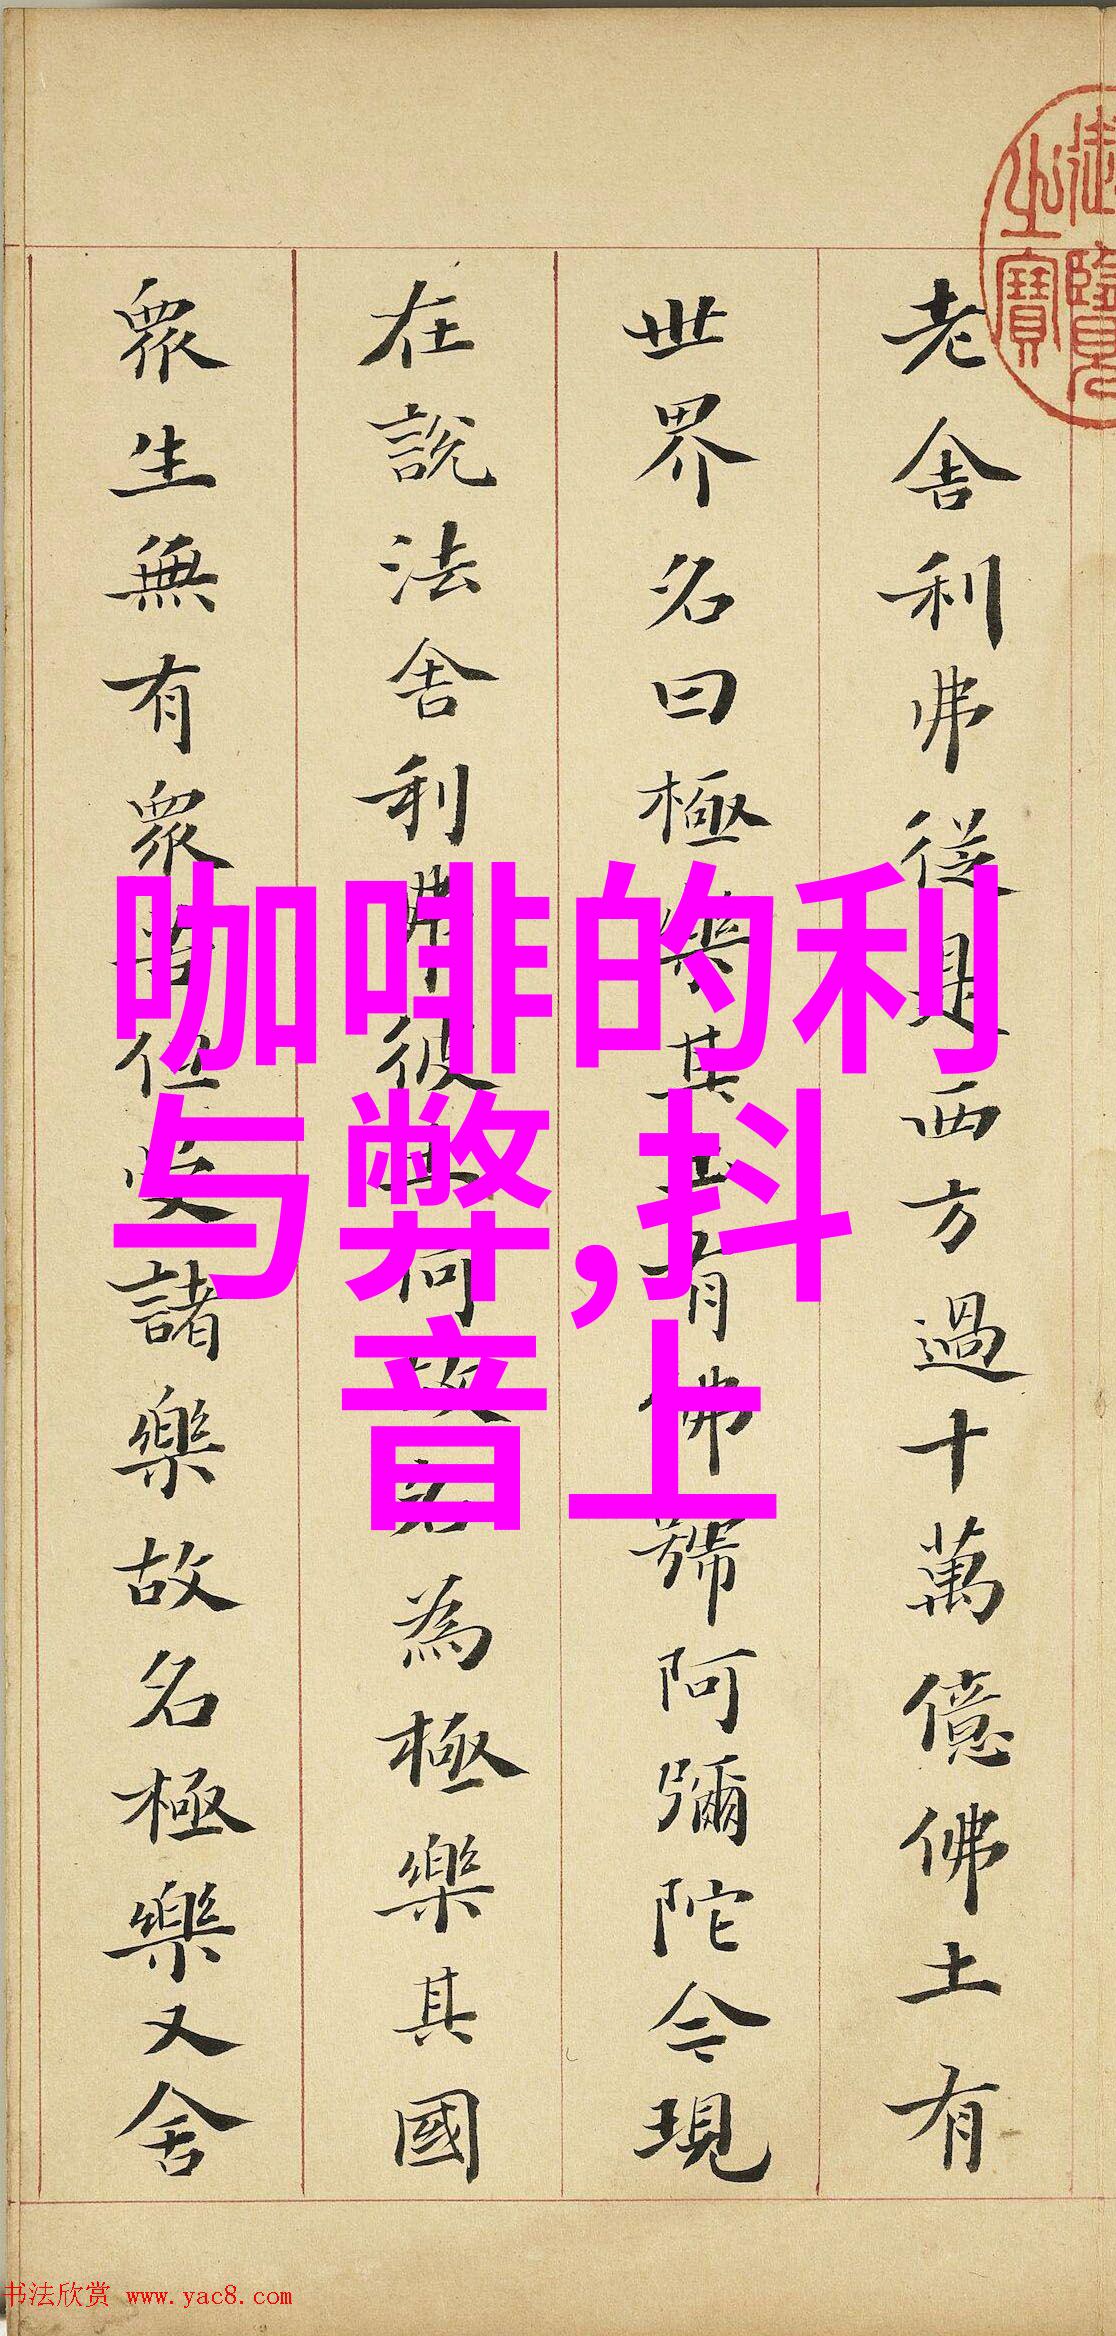 老舍利弗從是西方過十萬億佛土有
世界名曰極樂其土有佛號阿彌陀今現
在說法舍利弗彼土何故名為極樂其國
衆生無有衆苦但受諸樂故名極樂又舍
御覽之寶
咖啡的利
与弊,抖
音上
书法欣赏 www.yac8.com